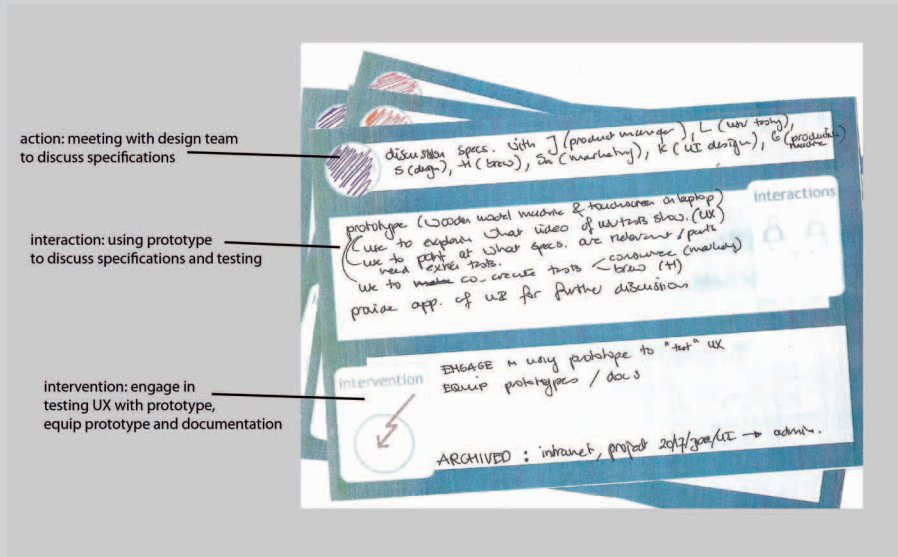 action: meeting with design team
to discuss specifications
interaction: using prototype
to discuss specifications and testing
intervention: engage in
testing UX with prototype,
equip prototype and documentation
discussion specs. with J (product manager), L (usr testg),
S (desgn), H (brew), Sa (marketg), K (UI design), G (production
machine)
interactions
prototype (wooden model machine & touchscreen on laptop)
use to explain what video of usr tests show. (UX)
use to point at what specs. are relevant / parts
need extra tests.
use to co-create tests < consumer (marketg)
brew (H)
provide app. of UI for further discussion
intervention
ENGAGE in using prototype to "test" UX
EQUIP prototypes / docs
ARCHIVED : intranet, project → admin.